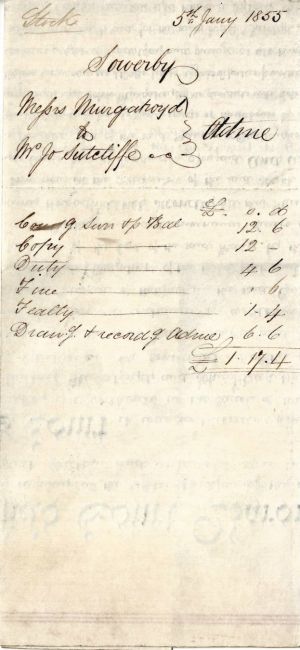 Stock
5th Jany 1855
Sowerby
Messrs Murgatroyd
to
Mr Jo Sutcliffe
Admce
£. s. d
g Surr op Bal 12. 6
Copy 12
Duty 4. 6
Fine 6
Fealty 1. 4
Drawg. & recordg. Admce 6. 6
£ 1. 17. 4